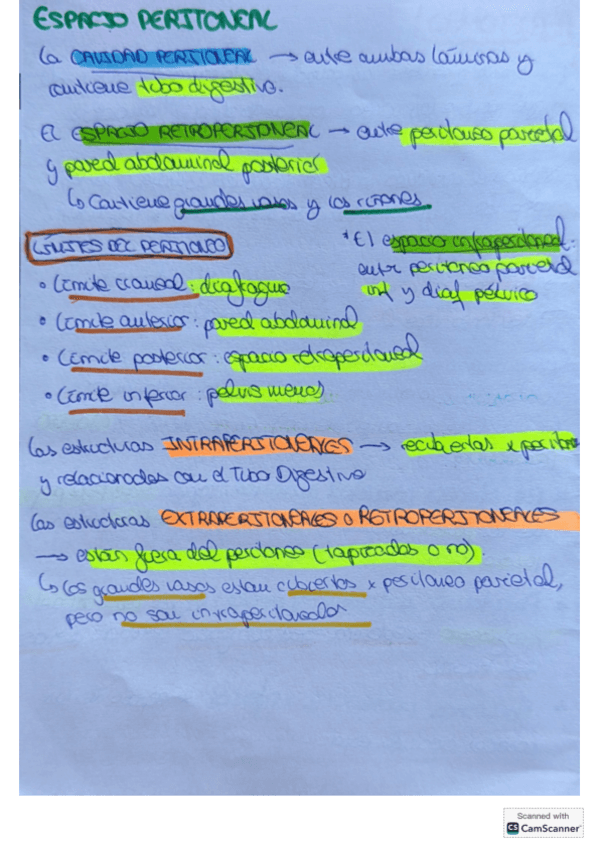 ESPACIO PERITONEAL
La CAVIDAD PERITONEAL → entre ambas láminas y
contiene tubo digestivo.
El ESPACIO RETROPERITONEAL → entre peritoneo parietal
y pared abdominal posterior
↳ Contiene grandes vasos y los riñones.
LÍMITES DEL PERITONEO
* El espacio infraperitoneal:
entre peritoneo parietal
inf y diaf pélvico
• Límite craneal: diafragma
• Límite anterior: pared abdominal
• Límite posterior: espacio retroperitoneal
• Límite inferior: pelvis menor
Las estructuras INTRAPERITONEALES → recubiertas x peritoneo
y relacionadas con el Tubo Digestivo
Las estructuras EXTRAPERITONEALES o RETROPERITONEALES
→ están fuera del peritoneo (tapizadas o no)
↳ Los grandes vasos están cubiertos x peritoneo parietal,
pero no son intraperitoneales
Scanned with
CS CamScanner